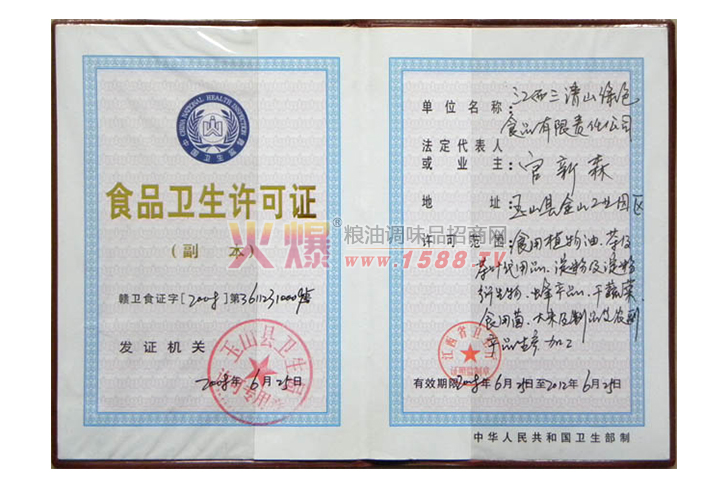 CHINA NATIONAL HEALTH INSPECTION
中国卫生监督
食品卫生许可证
(副 本)
赣卫食证字[2008]第361123100
发证机关
玉山县卫生局
许可专用章
2008年6月25日
单位名称:江西三清山绿色
食品有限责任公司
法定代表人
或业主:官新森
地 址:玉山县金山工业园区
许可范围:食用植物油、茶及
茶叶代用品、淀粉及淀粉
衍生物、蜂产品、干蔬菜、
食用菌、大米及制品及农副
产品生产加工
江西省卫生厅
证照监制章
有效期限2008年6月25日至2012年6月25日
中华人民共和国卫生部制
火爆®粮油调味品招商网
www.1588.TV